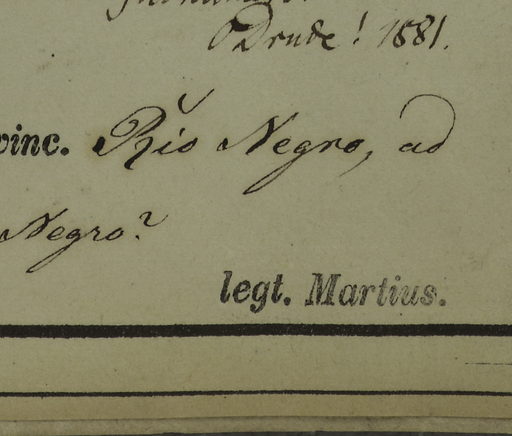 Drude! 1881.
vinc. Rio Negro, ad
Negro?
legt. Martius.